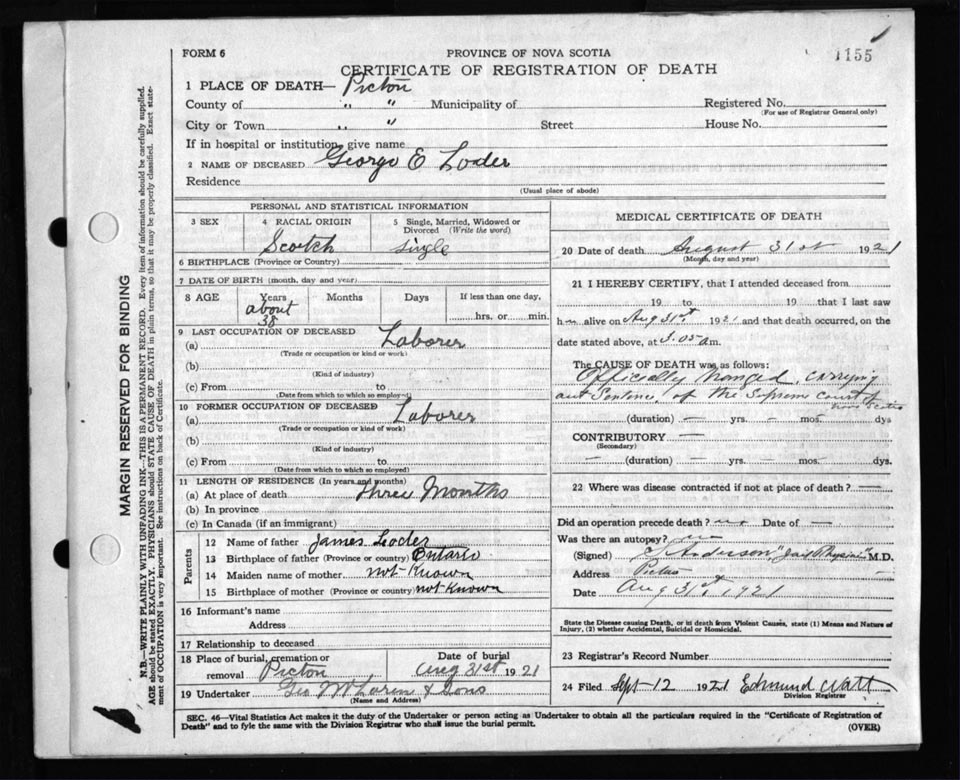 FORM 6
PROVINCE OF NOVA SCOTIA
1155
CERTIFICATE OF REGISTRATION OF DEATH
1 PLACE OF DEATH— Pictou
County of " " Municipality of Registered No.
(For use of Registrar General only)
City or Town " " Street House No.
If in hospital or institution, give name
2 NAME OF DECEASED George E Loder
Residence
(Usual place of abode)
PERSONAL AND STATISTICAL INFORMATION
3 SEX 4 RACIAL ORIGIN 5 Single, Married, Widowed or Divorced (Write the word)
Scotch single
6 BIRTHPLACE (Province or Country)
7 DATE OF BIRTH (month, day and year)
8 AGE Years Months Days If less than one day,
about 38 hrs. or min.
9 LAST OCCUPATION OF DECEASED
(a) Laborer
(Trade or occupation or kind of work)
(b)
(Kind of industry)
(c) From to
(Date from which to which so employed)
10 FORMER OCCUPATION OF DECEASED
(a) Laborer
(Trade or occupation or kind of work)
(b)
(Kind of industry)
(c) From to
(Date from which to which so employed)
11 LENGTH OF RESIDENCE (In years and months)
(a) At place of death three Months
(b) In province
(c) In Canada (if an immigrant)
Parents
12 Name of father James Loder
13 Birthplace of father (Province or country) Ontario
14 Maiden name of mother not Known
15 Birthplace of mother (Province or country) not Known
16 Informant's name
Address
17 Relationship to deceased
18 Place of burial, cremation or removal Pictou Date of burial Aug 31st 1921
19 Undertaker Geo & Sons
(Name and Address)
MEDICAL CERTIFICATE OF DEATH
20 Date of death August 31st 1921
(Month, day and year)
21 I HEREBY CERTIFY, that I attended deceased from
19 to 19 that I last saw
h m alive on Aug 31st 1921 and that death occurred, on the
date stated above, at 5.05 a m.
The CAUSE OF DEATH was as follows:
Officially hanged, carrying
out Sentence of the Supreme court of
Nova Scotia
(duration) — yrs. — mos. dys
CONTRIBUTORY —
(Secondary)
— (duration) — yrs. — mos. dys.
22 Where was disease contracted if not at place of death? —
Did an operation precede death? no Date of —
Was there an autopsy? no
(Signed) Anderson "Jail Physician" M.D.
Address Pictou
Date Aug 31st, 1921
State the Disease causing Death, or in death from Violent Causes, state (1) Means and Nature of
Injury, (2) whether Accidental, Suicidal or Homicidal.
23 Registrar's Record Number
24 Filed Sept-12 1921 Edmund Watt
Division Registrar
SEC. 46—Vital Statistics Act makes it the duty of the Undertaker or person acting as Undertaker to obtain all the particulars required in the "Certificate of Registration of
Death" and to fyle the same with the Division Registrar who shall issue the burial permit.
(OVER)
MARGIN RESERVED FOR BINDING
N.B.—WRITE PLAINLY WITH UNFADING INK—THIS IS A PERMANENT RECORD. Every item of information should be carefully supplied.
AGE should be stated EXACTLY. PHYSICIANS should STATE CAUSE OF DEATH in plain terms, so that it may be properly classified. Exact state-
ment of OCCUPATION is very important. See instructions on back of Certificate.